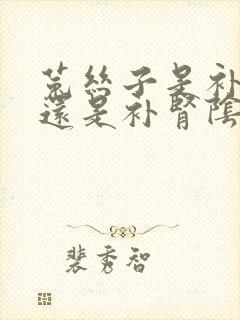 菟丝子是补
还是补肾陰
裴秀智